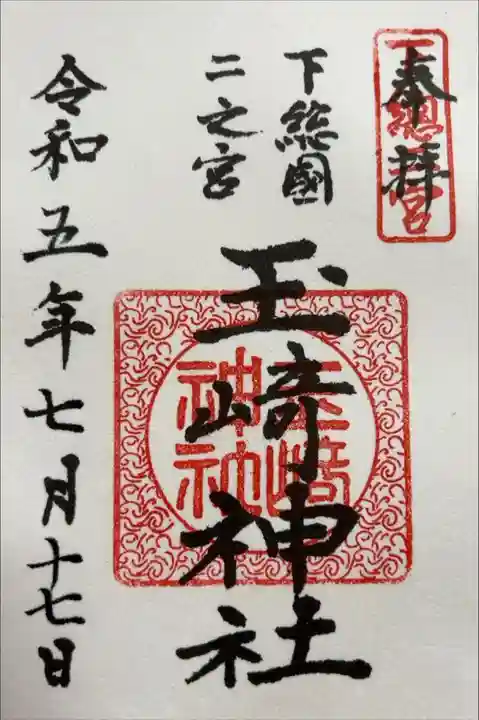 奉拝
下総國
二之宮
玉﨑神社
令和五年七月十七日
玉﨑
神社